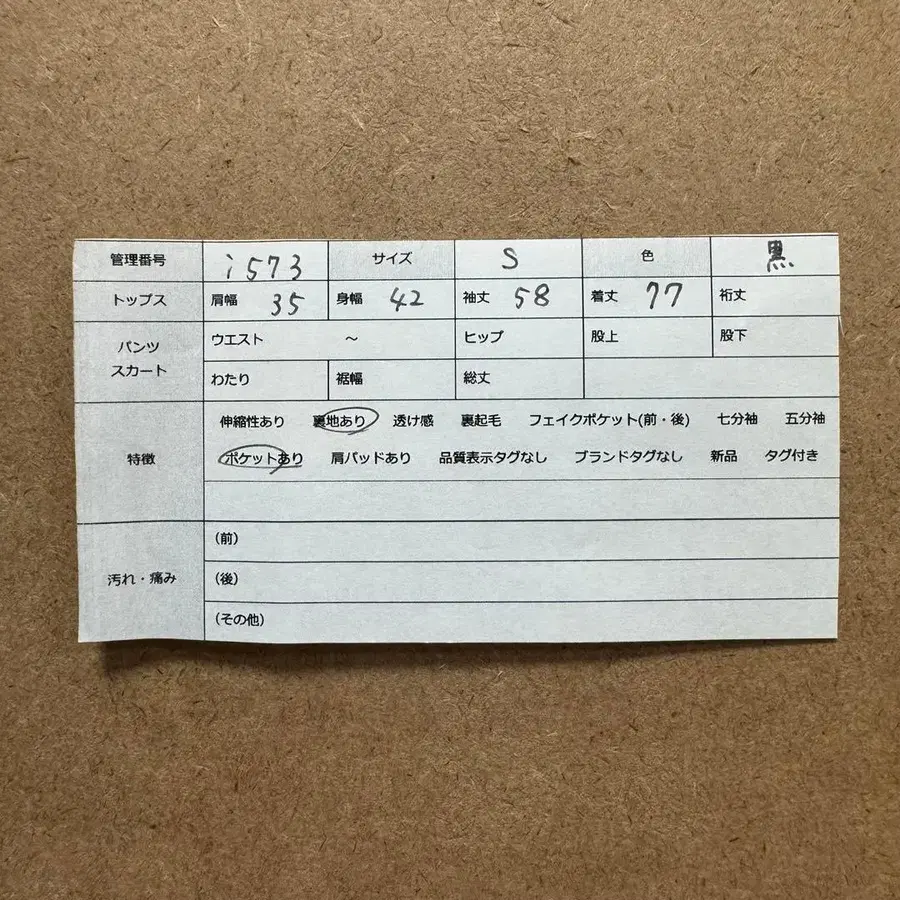 管理番号 i573 サイズ S 色 黒
トップス 肩幅 35 身幅 42 袖丈 58 着丈 77 裄丈
パンツ スカート ウエスト ～ ヒップ 股上 股下
わたり 裾幅 総丈
特徴 伸縮性あり 裏地あり 透け感 裏起毛 フェイクポケット(前・後) 七分袖 五分袖
ポケットあり 肩パッドあり 品質表示タグなし ブランドタグなし 新品 タグ付き
汚れ・痛み (前)
(後)
(その他)